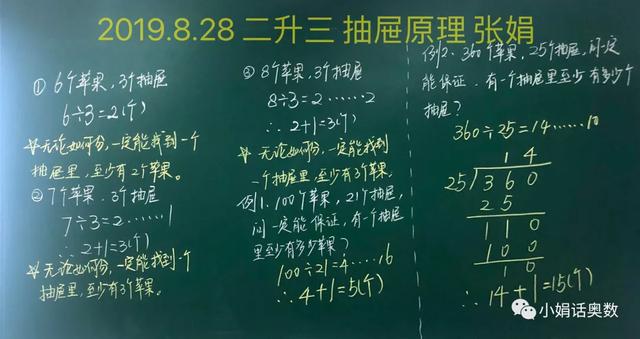 2019.8.28 二升三 抽屉原理 张娟
① 6个苹果,3个抽屉
6÷3=2(个)
☆无论如何分,一定能找到一个
抽屉里,至少有2个苹果。
② 7个苹果.3个抽屉
7÷3=2......1
∴2+1=3(个)
☆无论如何分,一定能找到一个
抽屉里,至少有3个苹果。
③ 8个苹果,3个抽屉
8÷3=2......2
∴2+1=3(个)
☆无论如何分,一定能找到
一个抽屉里,至少有3个苹果。
例1.100个苹果,21个抽屉,
问一定能保证,有一个抽屉
里至少有多少苹果?
100÷21=4.....16
∴4+1=5(个)
例2、360个苹果,25个抽屉,问一定
能保证.有一个抽屉里至少有多少个
抽屉?
360÷25=14......10
14
25 360
25
110
100
10
∴14+1=15(个)
小娟话奥数